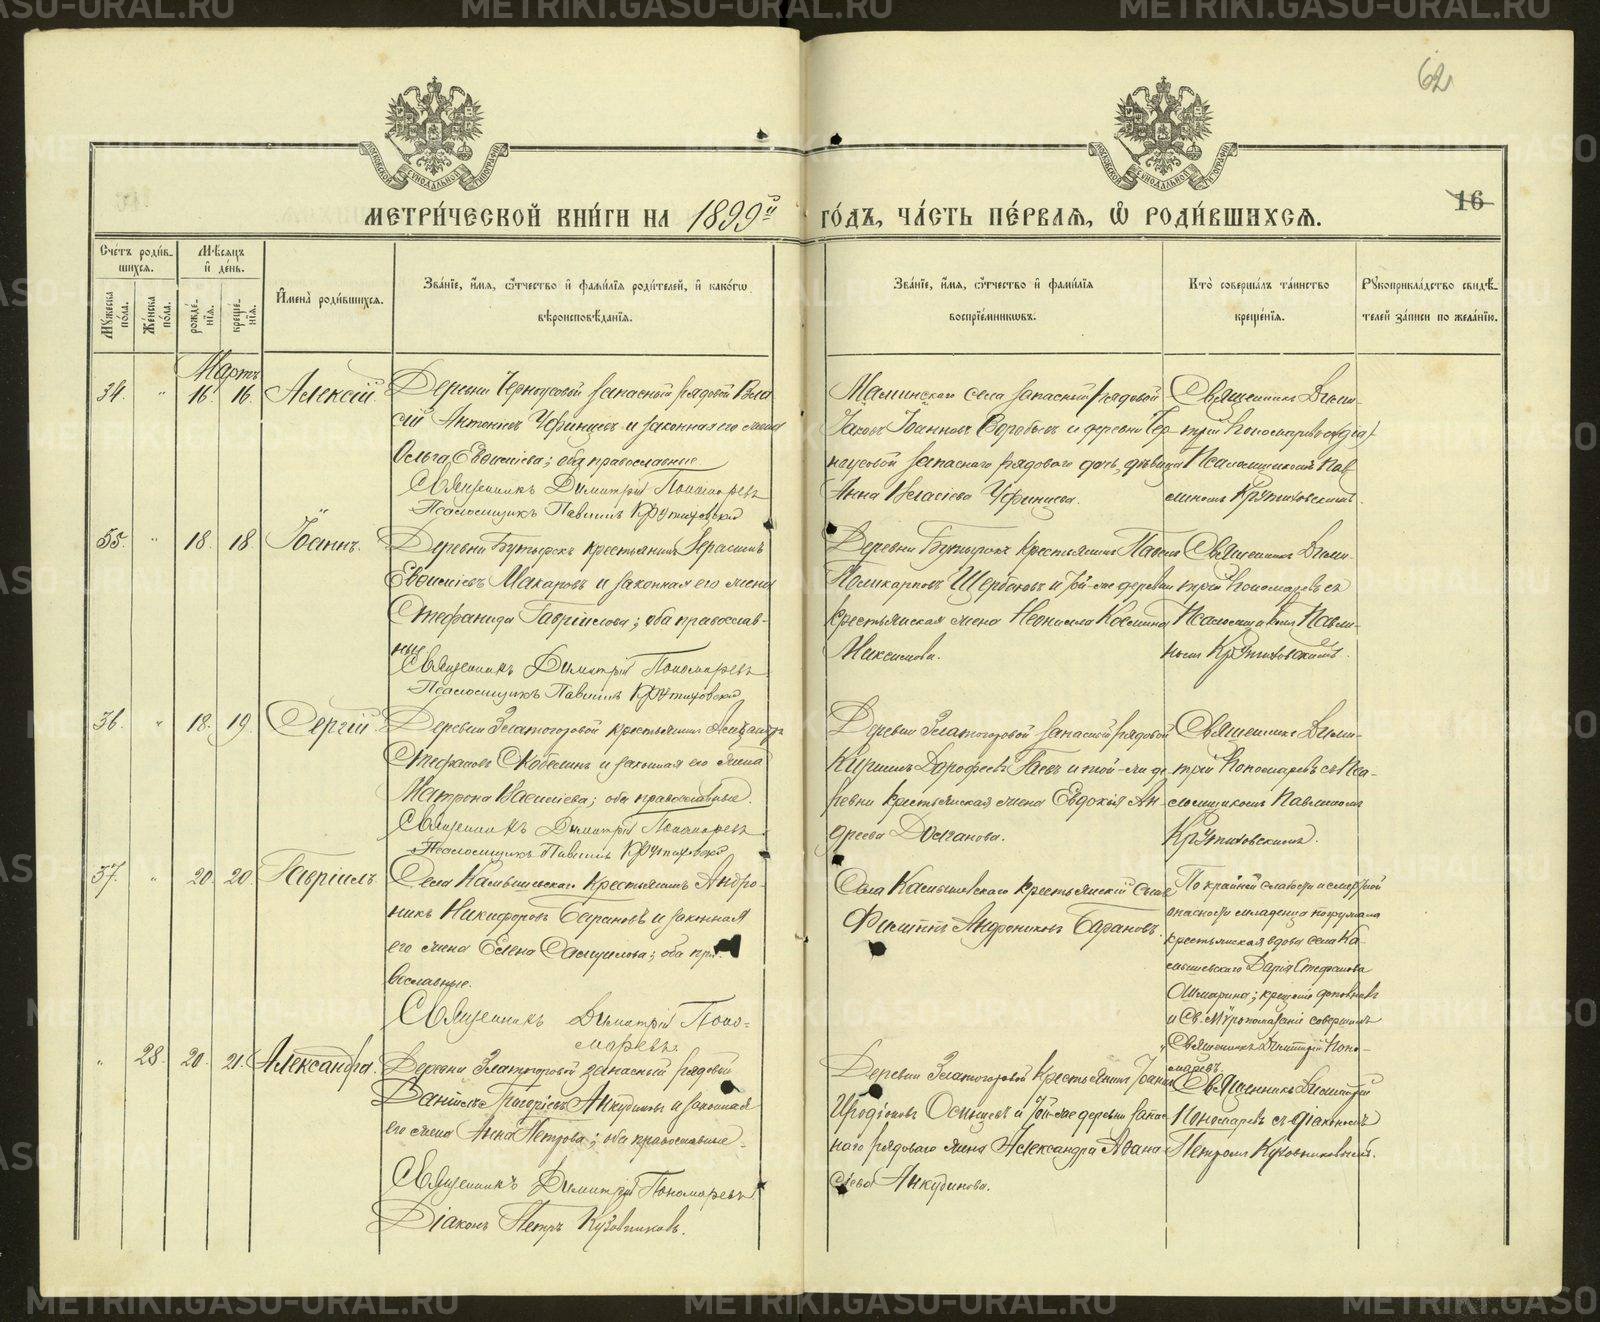 METRIKI.GASU-URAL.RU
62
МОСКОВСКОЙ СѴНОДАЛЬНОЙ ТИПОГРАФІИ
МОСКОВСКОЙ СѴНОДАЛЬНОЙ ТИПОГРАФІИ
16
МЕТРИ́ЧЕСКОЙ КНИ́ГИ НА 1899й ГО́ДЪ, ЧА́СТЬ ПЕ́РВАЯ, Ѿ РОДИ́ВШИХСЯ.
Сче́тъ роди́в-
шихся.
Мꙋ́жеска по́ла.
Же́нска по́ла.
Мѣ́сяцъ
и҆ де́нь.
рожде́-
нїя.
креще́-
нїя.
И҆мена̀ роди́вшихся.
Зва́нїе, и҆́мя, ѻ҆́тчество и҆ фамı́лїя роди́телей, и҆ како́гѡ
вѣроисповѣ́данїя.
Зва́нїе, и҆́мя, ѻ҆́тчество и҆ фамı́лїя
воспрїе́мникѡвъ.
Кто̀ соверша́лъ та́инство
креще́нїя.
Рꙋкоприкла́дство свидѣ́-
телей за́писи по жела́нїю.
Мартъ
34. " 16. 16. Алексій
Деревни Черноусовой запасной рядовой Вла-
сій Антоніевъ Уфинцевъ и законная его жена
Ольга Евѳиміева; оба православные
Священникъ Димитрій Пономаревъ
Псаломщикъ Павлинъ Крутиховскій
Маминскаго села запасный рядовой
Іаковъ Іоанновъ Воробьевъ и деревни Чер-
ноусовой запаснаго рядового дочь, дѣвица
Анна Власіева Уфинцева.
Священникъ Дими-
трій Пономаревъ съ
Псаломщикомъ Пав-
линомъ Крутиховскимъ.
35. " 18. 18. Іоаннъ.
Деревни Бутырокъ крестьянинъ Герасимъ
Евѳиміевъ Макаровъ и законная его жена
Стефанида Гавріилова; оба православ-
ны
Священникъ Димитрій Пономаревъ
Псаломщикъ Павлинъ Крутиховскій
Деревни Бутырокъ крестьянинъ Павелъ
Поликарповъ Щербаковъ и той-же деревни
крестьянская жена Неонилла Космина
Максимова.
Священникъ Дими-
трій Пономаревъ съ
Псаломщикомъ Павли-
номъ Крутиховскимъ.
36. " 18. 19. Сергій
Деревни Златогоровой крестьянинъ Александръ
Стефановъ Скобелинъ и законная его жена
Матрона Василіева; оба православные.
Священникъ Димитрій Пономаревъ
Псаломщикъ Павлинъ Крутиховскій
Деревни Златогоровой запасной рядовой
Кириллъ Дороѳеевъ Гаевъ и той-же де-
ревни крестьянская жена Евдокія Ан-
дреева
Священникъ Дими-
трій Пономаревъ съ Пса-
ломщикомъ Павлиномъ
Крутиховскимъ.
37. " 20. 20. Гавріилъ
Села Камышевскаго крестьянинъ Андро-
никъ Никифоровъ Барановъ и законная
его жена Елена Самуилова; оба пра-
вославные.
Священникъ Димитрій Поно-
маревъ.
Села Камышевскаго крестьянскій сынъ
Филиппъ Андрониковъ Барановъ.
По крайней слабости и смертной
опасности младенца погружала
крестьянская вдова села Ка-
мышевскаго Дарія Стефанова
крещеніе дополнилъ
и Св. Мѵропомазаніе совершилъ
Священникъ Димитрій Поно-
маревъ
" 28. 20. 21. Александра.
Деревни Златогоровой запасный рядовой
Даніилъ Григоріевъ Анкудиновъ и законная
его жена Анна Петрова; оба православные.
Священникъ Димитрій Пономаревъ
Діаконъ Петръ Кузовниковъ.
Деревни Златогоровой крестьянинъ Іоаннъ
Иродіоновъ Оснцевъ и той-же деревни запас-
наго рядоваго жена Александра Аѳана-
сіева Анкудинова.
Священникъ Димитрій
Пономаревъ съ діакономъ
Петромъ Кузовниковымъ.
METRIKI.GASU-URAL.RU